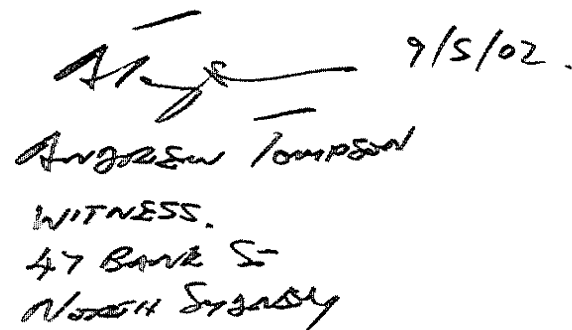 9/5/02.
ANDREW TOMPSON
WITNESS.
47 BANK ST
NORTH SYDNEY